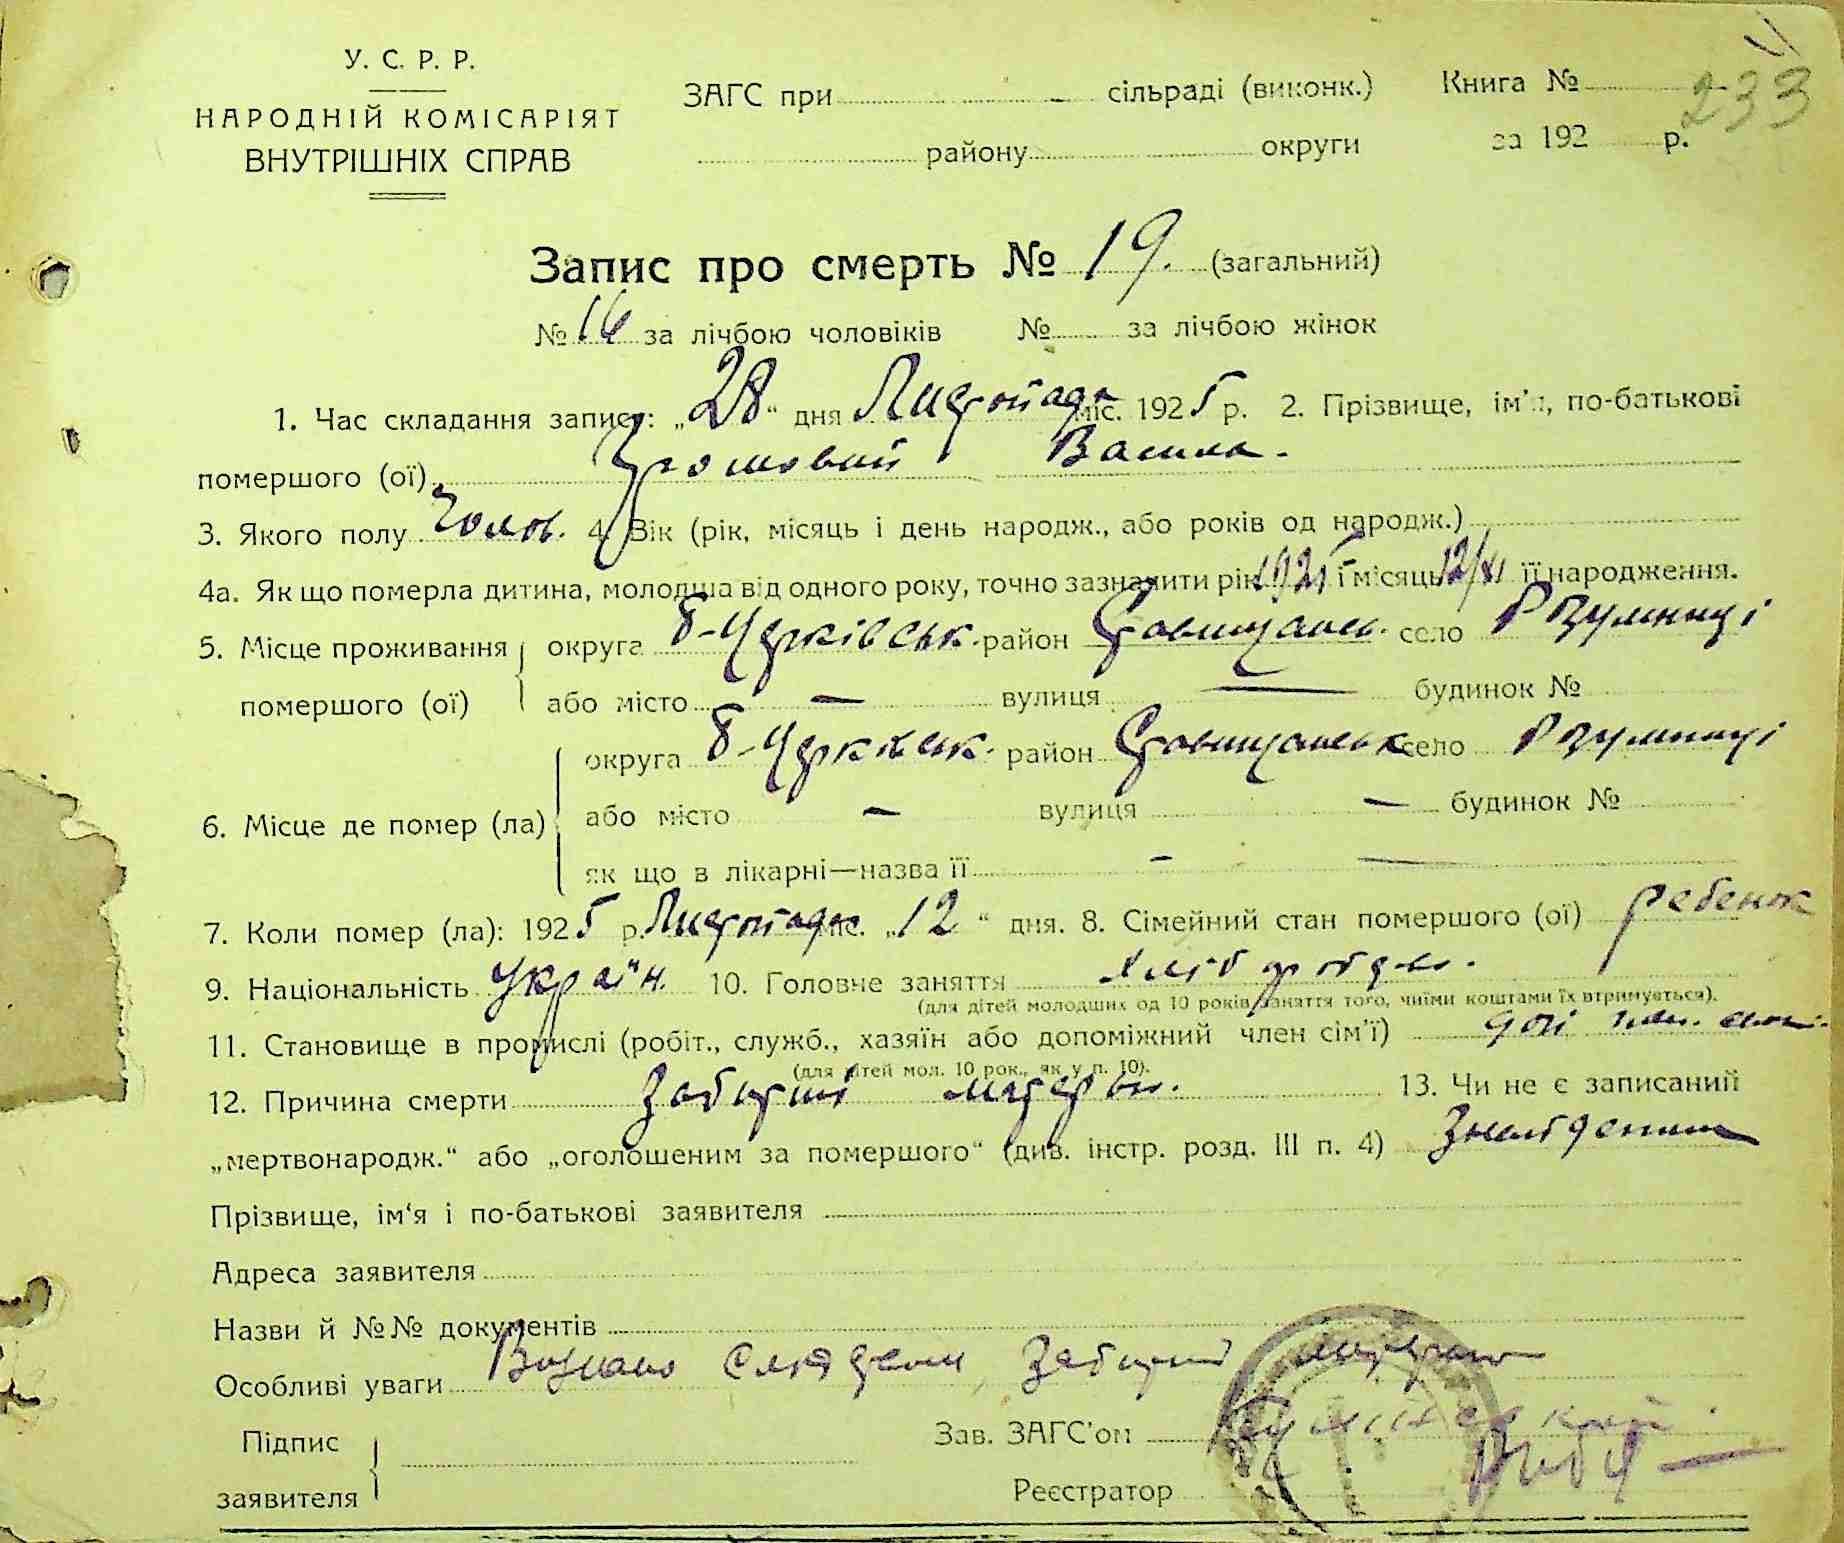 У. С. Р. Р.
НАРОДНІЙ КОМІСАРІЯТ
ВНУТРІШНІХ СПРАВ
ЗАГС при сільраді (виконк.) Книга №
району округи за 192 р.
233
Запис про смерть № 19. (загальний)
№ 16 за лічбою чоловіків № за лічбою жінок
1. Час складання запису: „28“ дня Листопада міс. 1925 р. 2. Прізвище, ім'я, по-батькові
помершого (ої) Василь.
3. Якого полу Чолов. 4. Вік (рік, місяць і день народж., або років од народж.)
4а. Як що померла дитина, молодша від одного року, точно зазначити рік 1925 і місяць 12/XI її народження.
5. Місце проживання помершого (ої) округа Б-Церківськ. район Ставищанськ. село Розумниці
або місто — вулиця — будинок №
6. Місце де помер (ла) округа Б-Церківськ. район Ставищанськ село Розумниці
або місто — вулиця — будинок №
як що в лікарні—назва її — —
7. Коли помер (ла): 1925 р. Листопада міс. „12“ дня. 8. Сімейний стан помершого (ої) ребенок
9. Національність Україн. 10. Головне заняття хлібороб
(для дітей молодших од 10 років заняття того, чиїми коштами їх втримується).
11. Становище в промислі (робіт., служб., хазяїн або допоміжний член сім'ї)
(для дітей мол. 10 рок., як у п. 10).
12. Причина смерти Забитий матерью. 13. Чи не є записаний
„мертвонародж.“ або „оголошеним за помершого“ (див. інстр. розд. III п. 4)
Прізвище, ім'я і по-батькові заявителя
Адреса заявителя
Назви й №№ документів
Особливі уваги забитий
Підпис заявителя
Зав. ЗАГС'ом
Реєстратор